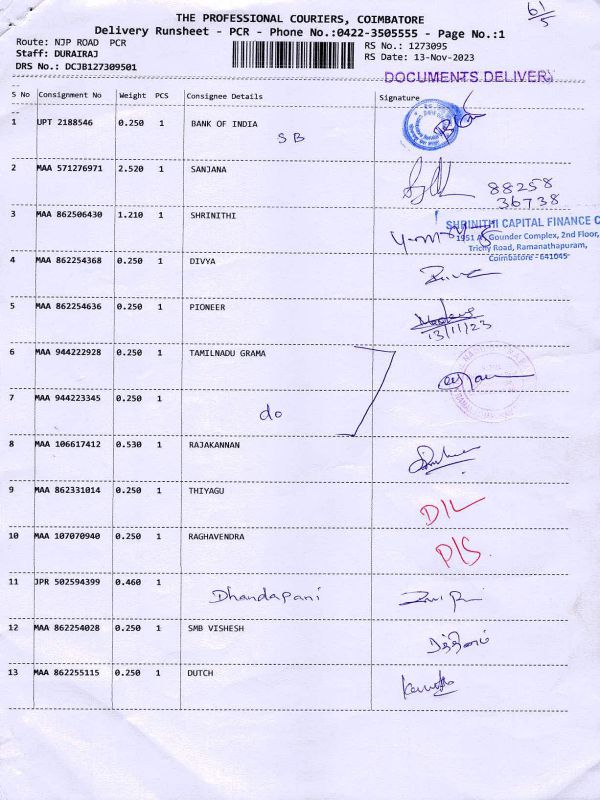 61/5
THE PROFESSIONAL COURIERS, COIMBATORE
Delivery Runsheet - PCR - Phone No.:0422-3505555 - Page No.:1
Route: NJP ROAD PCR
RS No.: 1273095
Staff: DURAIRAJ
RS Date: 13-Nov-2023
DRS No.: DCJB127309501
DOCUMENTS DELIVERY
S No Consignment No Weight PCS Consignee Details Signature
1 UPT 2188546 0.250 1 BANK OF INDIA
SB
2 MAA 571276971 2.520 1 SANJANA
88258
36738
3 MAA 862506430 1.210 1 SHRINITHI
SHRINITHI CAPITAL FINANCE C
1951 A, Gounder Complex, 2nd Floor,
Trichy Road, Ramanathapuram,
Coimbatore - 641045
4 MAA 862254368 0.250 1 DIVYA
5 MAA 862254636 0.250 1 PIONEER
13/11/23
6 MAA 944222928 0.250 1 TAMILNADU GRAMA
7 MAA 944223345 0.250 1
do
8 MAA 106617412 0.530 1 RAJAKANNAN
9 MAA 862331014 0.250 1 THIYAGU
D/L
10 MAA 107070940 0.250 1 RAGHAVENDRA
D/S
11 JPR 502594399 0.460 1
Dhandapani
12 MAA 862254028 0.250 1 SMB VISHESH
13 MAA 862255115 0.250 1 DUTCH